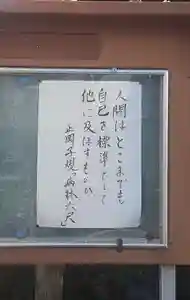 人間はどこまでも
自己を標準として
他に及ぼすものか
正岡子規「病牀六尺」